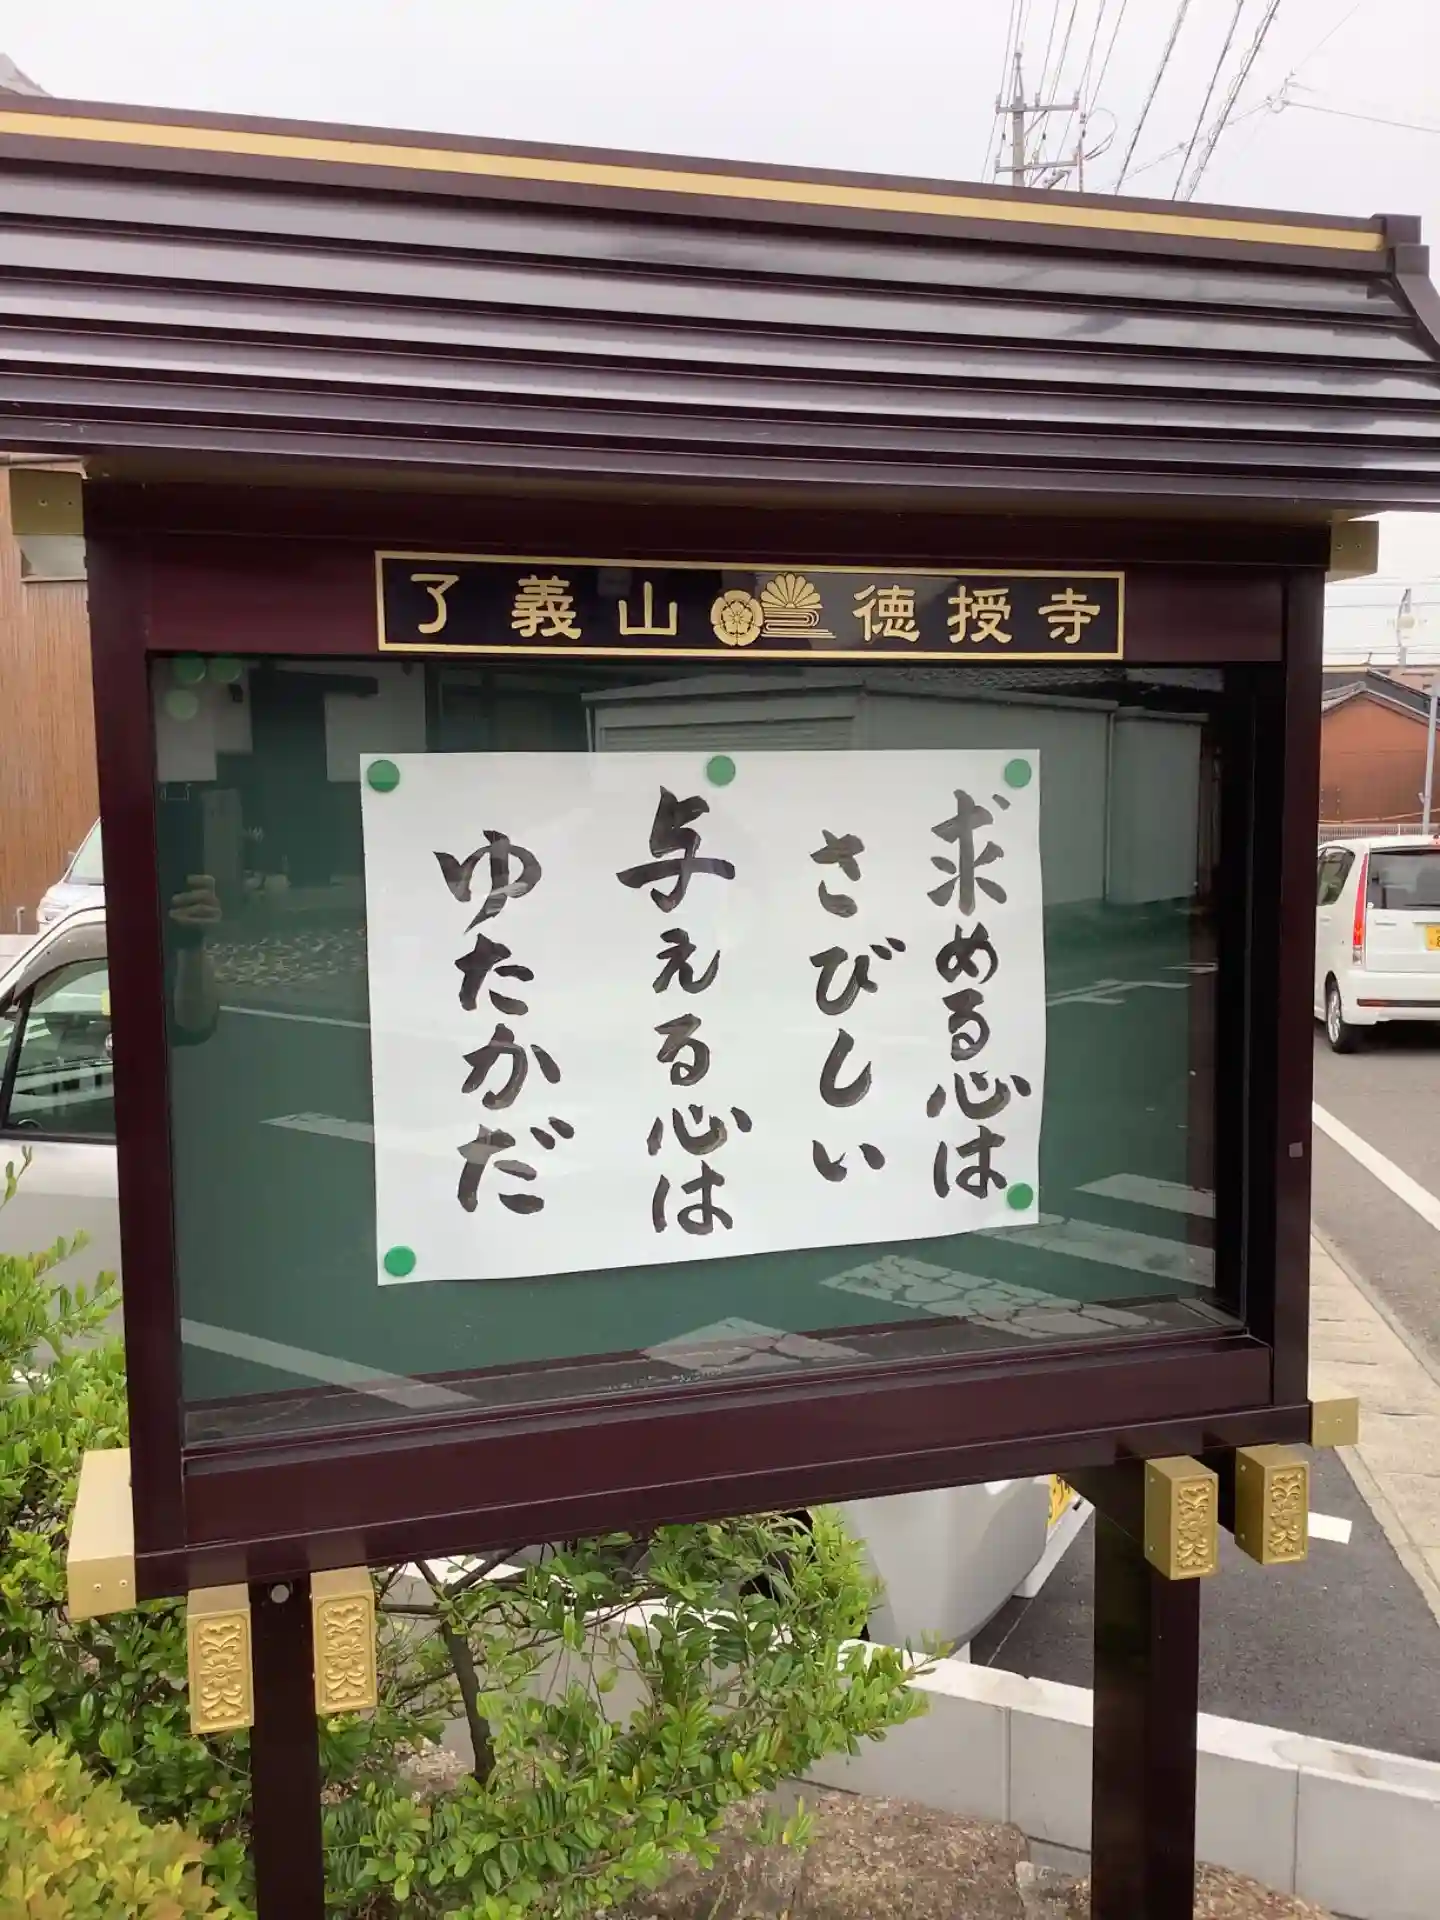 了義山 徳授寺
求める心は
さびしい
与える心は
ゆたかだ